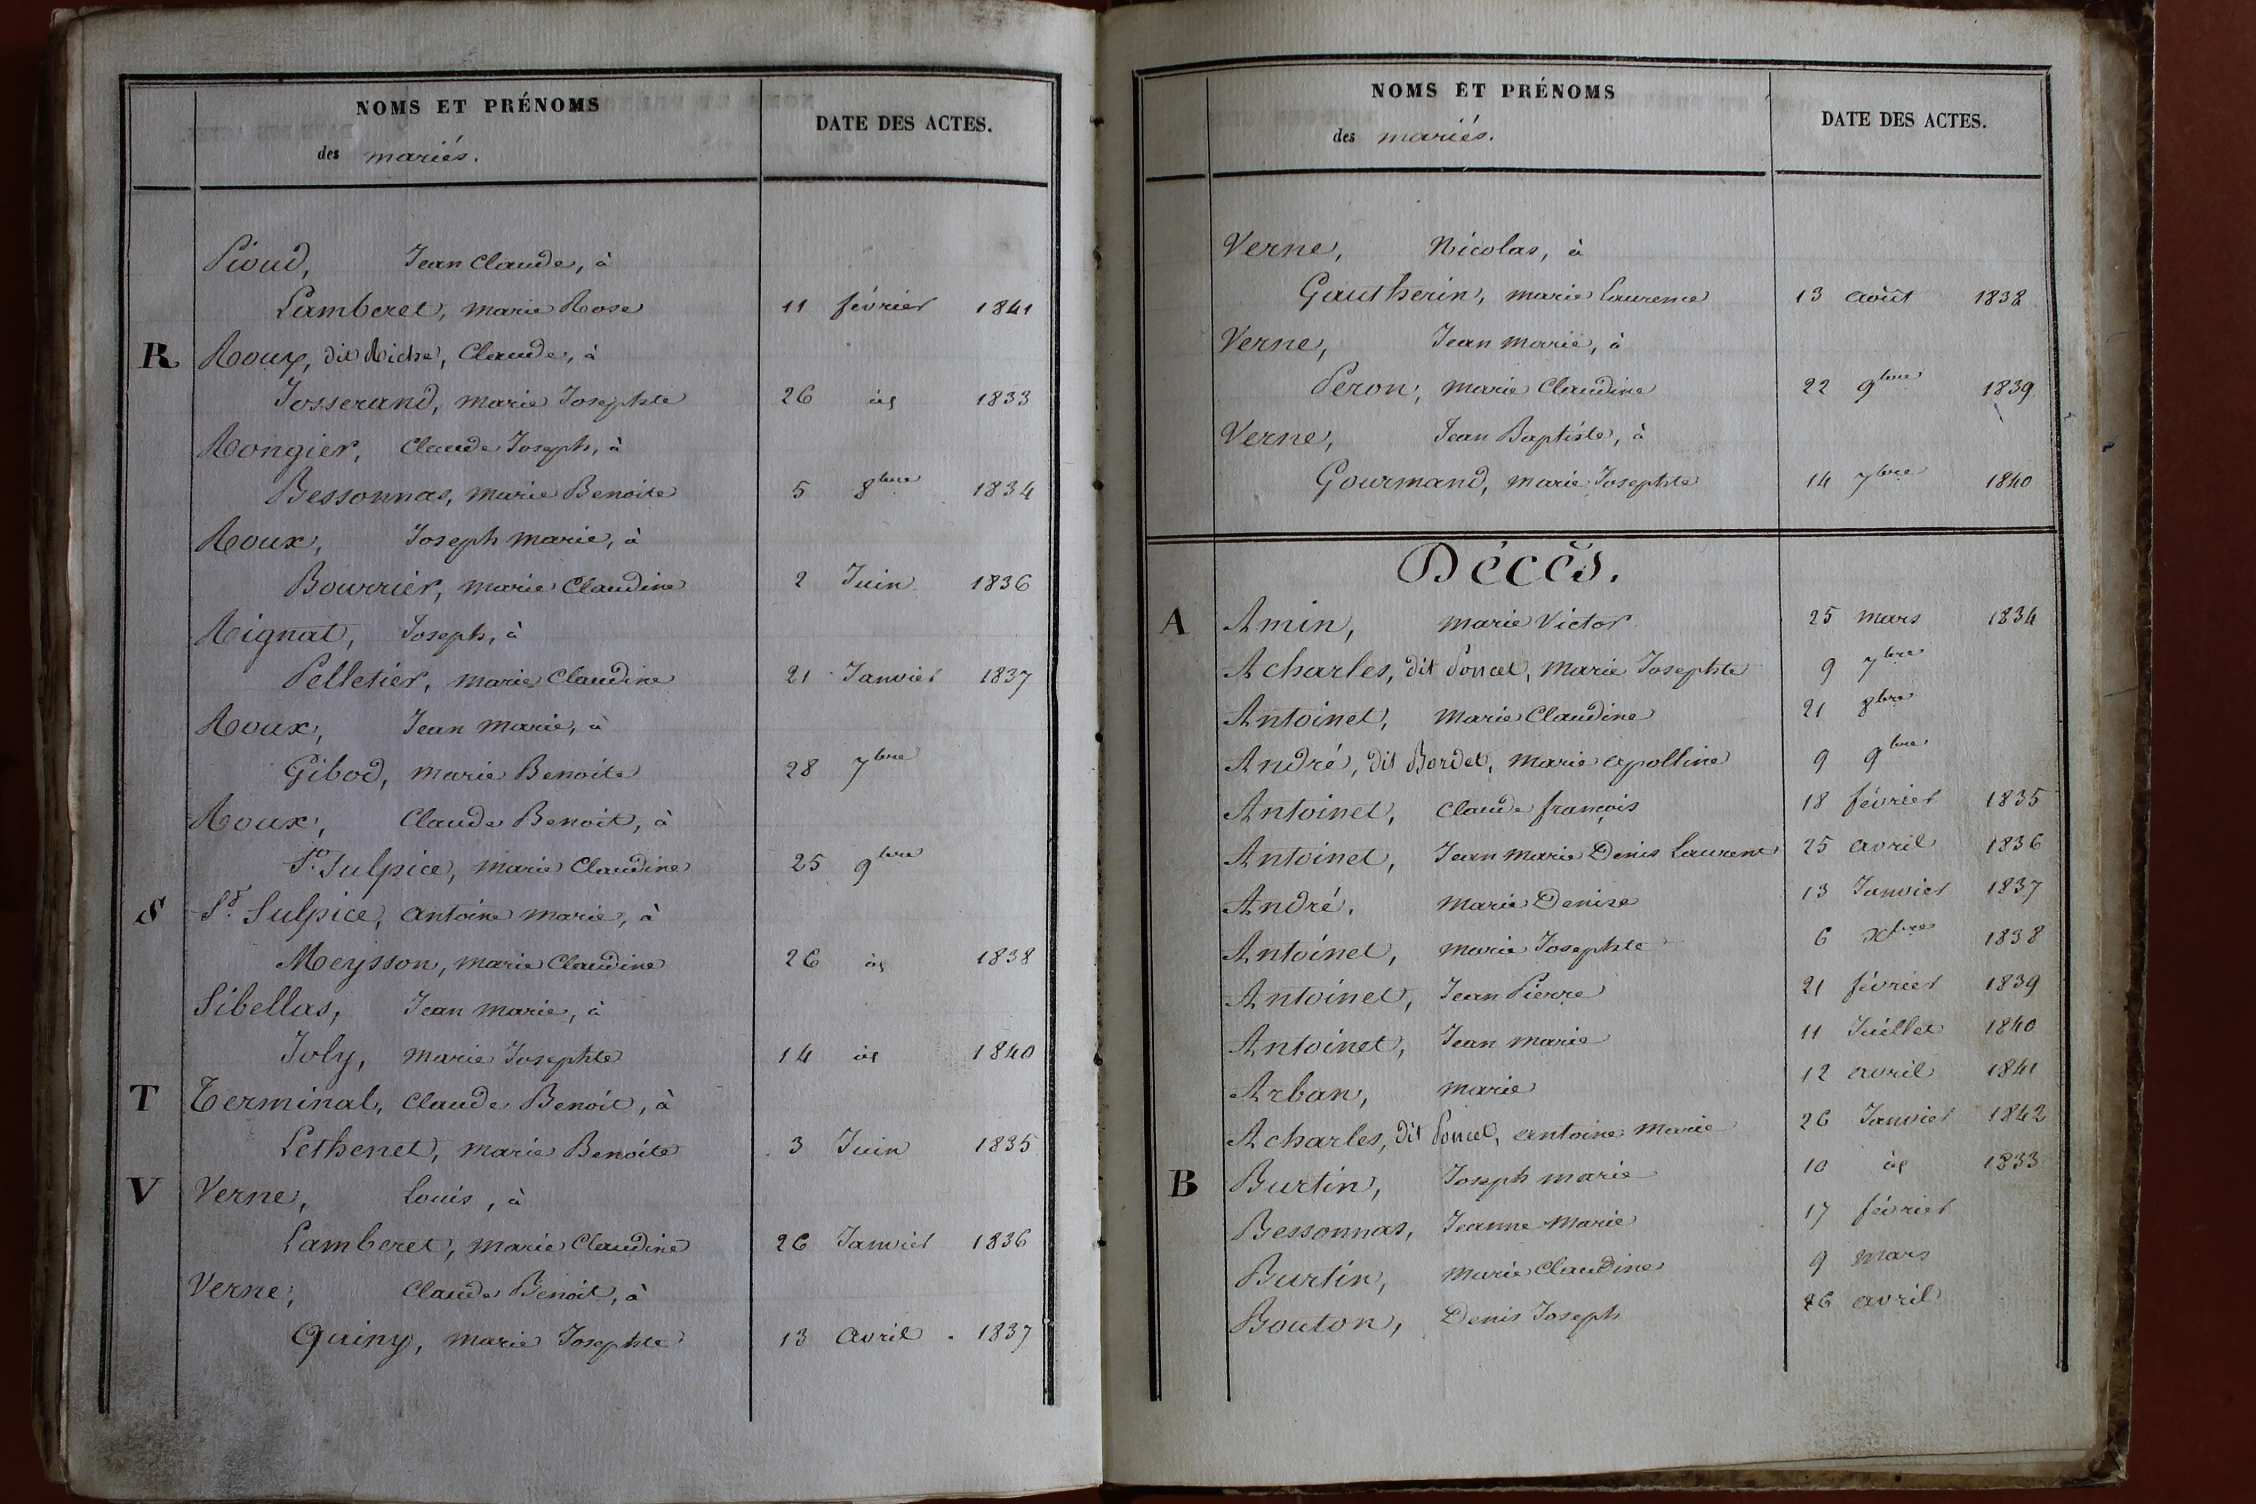 NOMS ET PRÉNOMS
des mariés.
DATE DES ACTES.
Pioud, Jean Claude, à
Lamberet, marie Rose 11 février 1841
R Roux, dit Riche, Claude, à
Josserand, marie Josephte 26 id 1833
Rongier, Claude Joseph, à
Bessonnas, marie Benoite 5 8bre 1834
Roux, Joseph marie, à
Bourrier, marie Claudine 2 Juin 1836
Rignat, Joseph, à
Pelletier, marie Claudine 21 Janvier 1837
Roux, Jean marie, à
Gibod, marie Benoite 28 7bre
Roux, Claude Benoit, à
St. Sulpice, marie Claudine 25 9bre
S St. Sulpice, antoine marie, à
Meysson, marie Claudine 26 id 1838
Sibellas, Jean marie, à
Joly, marie Josephte 14 id 1840
T Terminal, Claude Benoit, à
Lethenet, marie Benoite 3 Juin 1835
V Verne, Louis, à
Lamberet, marie Claudine 26 Janvier 1836
Verne, Claude Benoit, à
Quiny, marie Josephte 13 avril 1837
NOMS ET PRÉNOMS
des mariés.
DATE DES ACTES.
Verne, Nicolas, à
Gautherin, marie Laurence 13 août 1838
Verne, Jean marie, à
Peron, marie Claudine 22 9bre 1839
Verne, Jean Baptiste, à
Gourmand, marie Josephte 14 7bre 1840
Décès.
A Amin, marie Victor 25 mars 1834
Acharles, dit Poncet, marie Josephte 9 7bre
Antoinet, marie Claudine 21 8bre
André, dit Bordet, marie apolline 9 9bre
Antoinet, Claude françois 18 février 1835
Antoinet, Jean marie Denis Laurent 25 avril 1836
André, marie Denise 13 Janvier 1837
Antoinet, marie Josephte 6 Xbre 1838
Antoinet, Jean Pierre 21 février 1839
Antoinet, Jean marie 11 Juillet 1840
Arban, marie 12 avril 1841
Acharles, dit Poncet, antoine marie 26 Janvier 1842
B Burtin, Joseph marie 10 id 1833
Bessonnas, Jeanne marie 17 février
Burtin, marie Claudine 9 mars
Bouton, Denis Joseph 26 avril